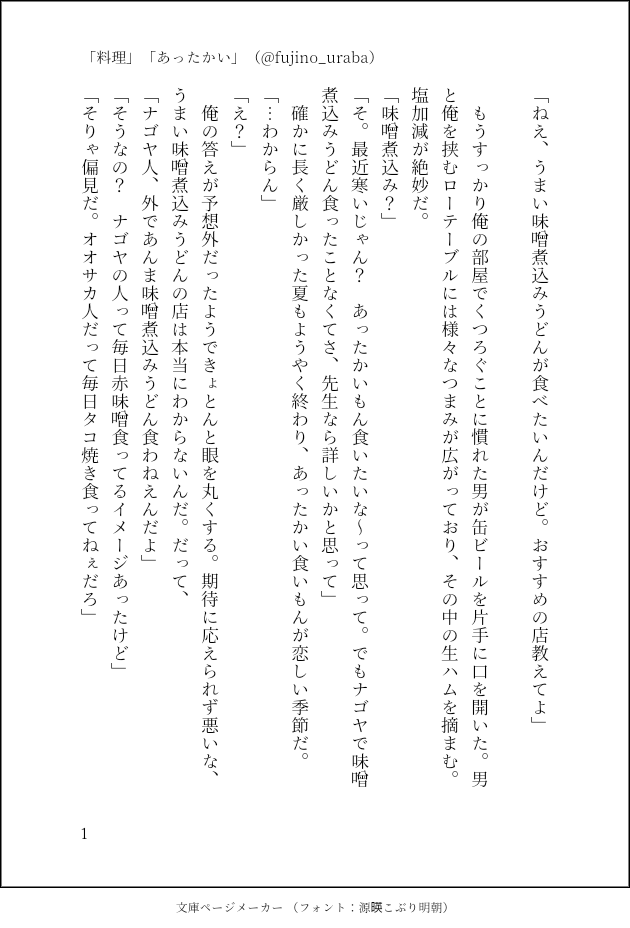 「料理」「あったかい」（@fujino_uraba）
「ねえ、うまい味噌煮込みうどんが食べたいんだけど。おすすめの店教えてよ」
　もうすっかり俺の部屋でくつろぐことに慣れた男が缶ビールを片手に口を開いた。男
と俺を挟むローテーブルには様々なつまみが広がっており、その中の生ハムを摘まむ。
塩加減が絶妙だ。
「味噌煮込み？」
「そ。最近寒いじゃん？　あったかいもん食いたいな～って思って。でもナゴヤで味噌
煮込みうどん食ったことなくてさ、先生なら詳しいかと思って」
　確かに長く厳しかった夏もようやく終わり、あったかい食いもんが恋しい季節だ。
「…わからん」
「え？」
　俺の答えが予想外だったようできょとんと眼を丸くする。期待に応えられず悪いな、
うまい味噌煮込みうどんの店は本当にわからないんだ。だって、
「ナゴヤ人、外であんま味噌煮込みうどん食わねえんだよ」
「そうなの？　ナゴヤの人って毎日赤味噌食ってるイメージあったけど」
「そりゃ偏見だ。オオサカ人だって毎日タコ焼き食ってねぇだろ」
1
文庫ページメーカー（フォント：源暎こぶり明朝）